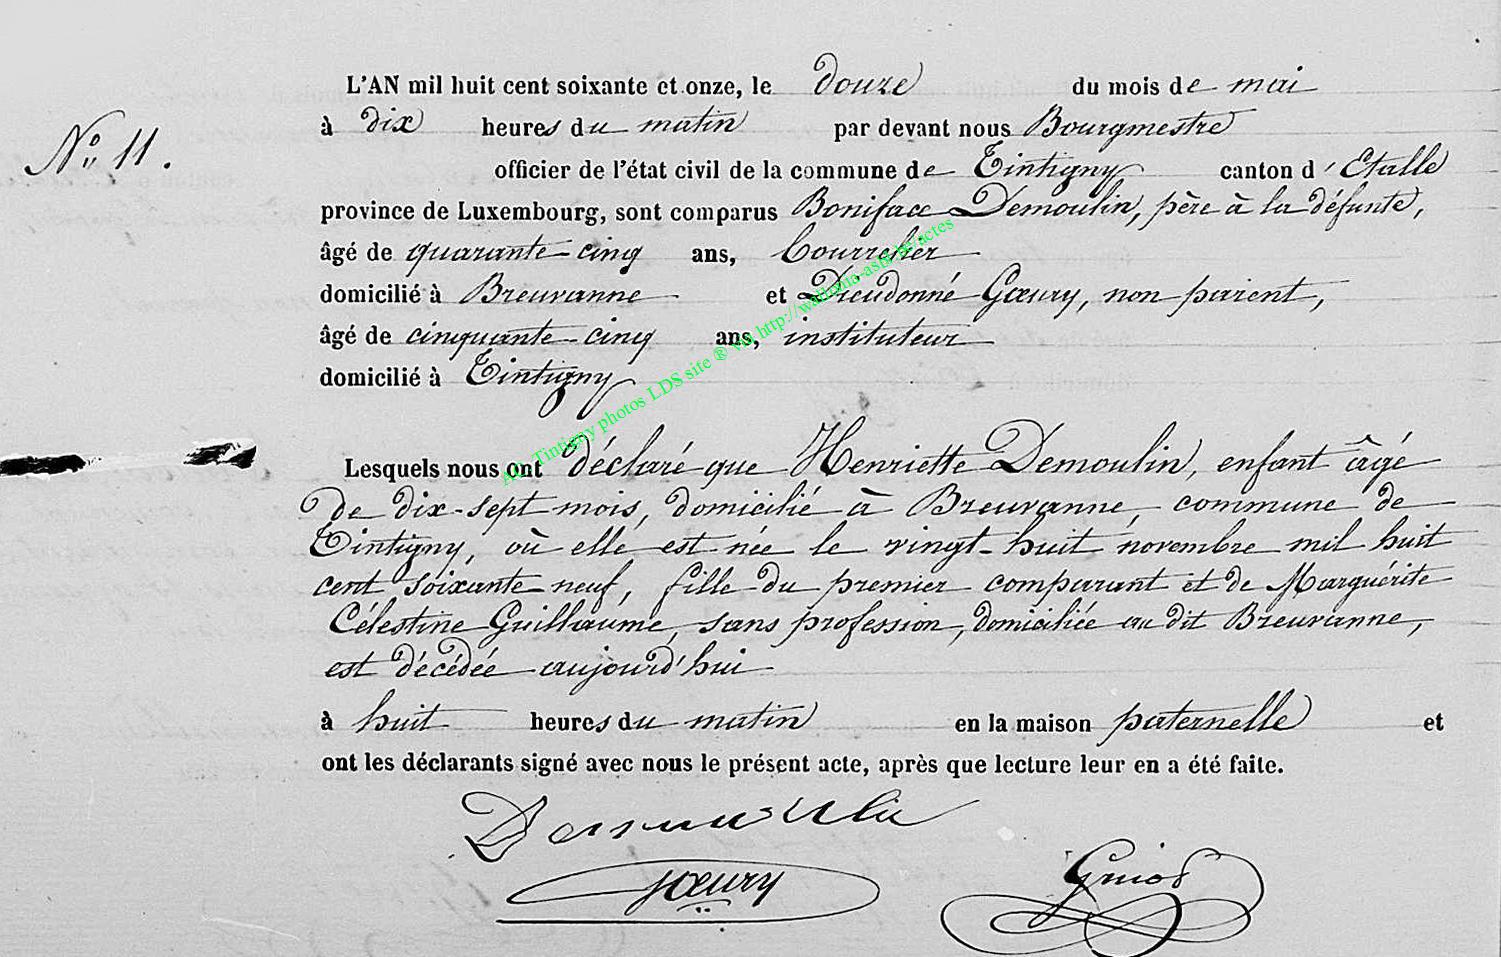 L'AN mil huit cent soixante et onze, le douze du mois de mai
No 11.
à dix heures du matin par devant nous Bourgmestre
officier de l'état civil de la commune de Tintigny canton d'Etalle
province de Luxembourg, sont comparus Boniface Demoulin, père à la défunte,
âgé de quarante-cinq ans, bourrelier
domicilié à Breuvanne et Dieudonné Gœury, non parent,
âgé de cinquante-cinq ans, instituteur
domicilié à Tintigny
Tintigny photos LDS site ® via http://wallonia-asbl.be/actes
Lesquels nous ont déclaré que Henriette Demoulin, enfant âgé
de dix-sept mois, domicilié à Breuvanne, commune de
Tintigny, où elle est née le vingt-huit novembre mil huit
cent soixante-neuf, fille du premier comparant et de Marguérite
Célestine Guillaume, sans profession, domiciliée au dit Breuvanne,
est décédée aujourd'hui
à huit heures du matin en la maison paternelle et
ont les déclarants signé avec nous le présent acte, après que lecture leur en a été faite.
Demoulin
Gœury